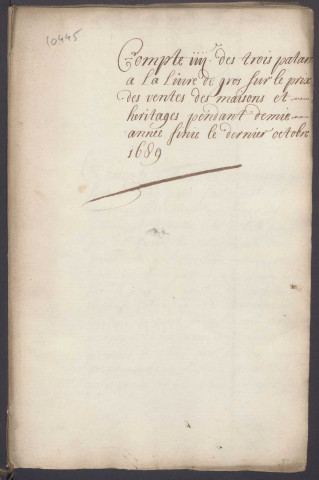 10445
Compte iiij.e des trois patars
a la livre de gros sur le prix
des ventes des maisons et
heritages pendant demie
année finie le dernier octobre
1689